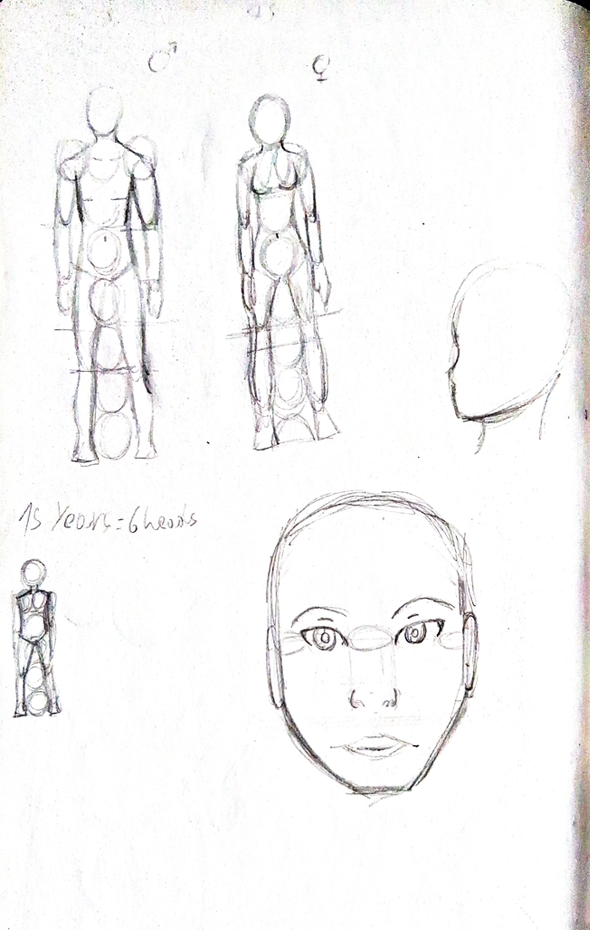 ♂
♀
15 Years = 6 heads